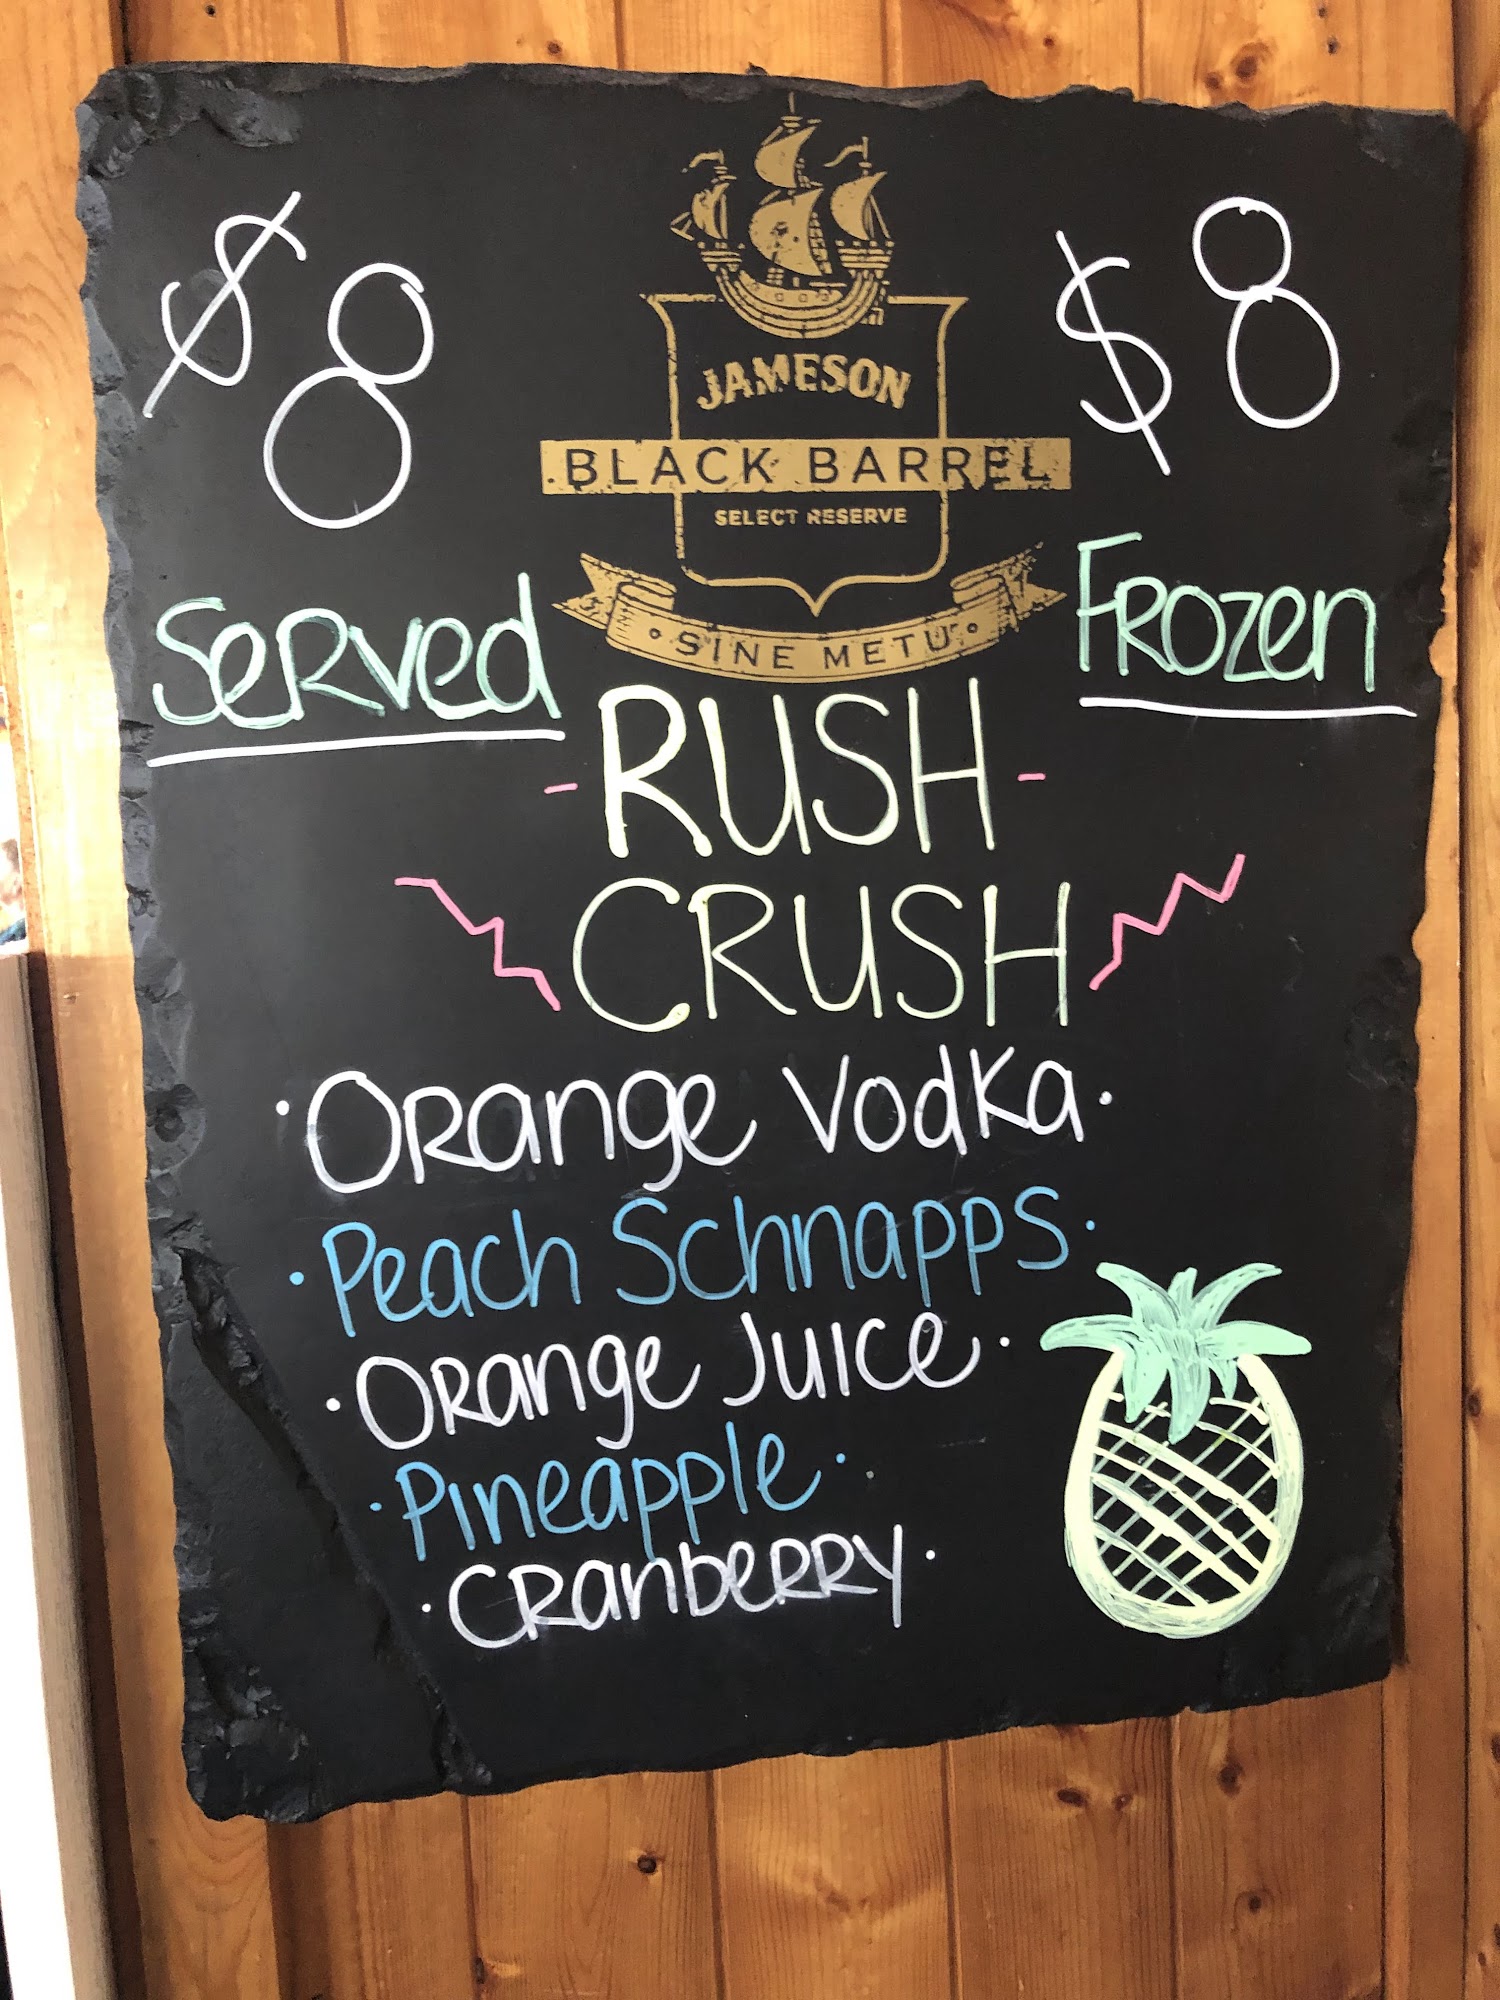 $8
$8
JAMESON
BLACK BARREL
SELECT RESERVE
· SINE METU ·
Served
Frozen
- RUSH -
CRUSH
· Orange Vodka ·
· Peach Schnapps ·
· Orange Juice ·
· Pineapple ·
· Cranberry ·